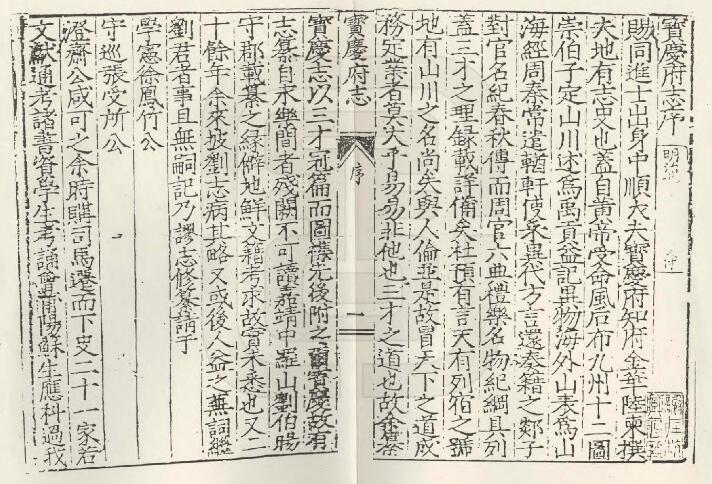 寶慶府志序
賜同進士出身中順大夫寶慶府知府金華陸柬撰
夫地有志史也蓋自黃帝受命風后布九州十二圖
崇伯子定山川述為禹貢益記異物海外山表為山
海經周秦常遣輶軒使采異代方言還奏籍之郯子
對官名紀春秋傳而周官六典禮樂名物紀綱具列
蓋三才之理錄載詳備矣杜預有言天有列宿之號
地有山川之名尚矣與人倫並是故冒天下之道成
務定業者莫大乎易易非他也三才之道也故
寶慶府志
序
一
寶慶志以三才冠篇而圖藩先後附之爾寶慶故有
志纂自永樂間者殘闕不可讀嘉靖中羅山劉伯暘
守郡載纂之緣僻地鮮文籍考求故實未悉也又二
十餘年余來披劉志病其略又或後人益之蕪詞繼
劉君者事且無嗣記乃謬志修纂請于
學憲徐鳳竹公
守巡張受所公
澄齋公咸可之余時購司馬遷而下史二十一家若
文獻通考諸書資學生考誦會陽蘇生應科過我